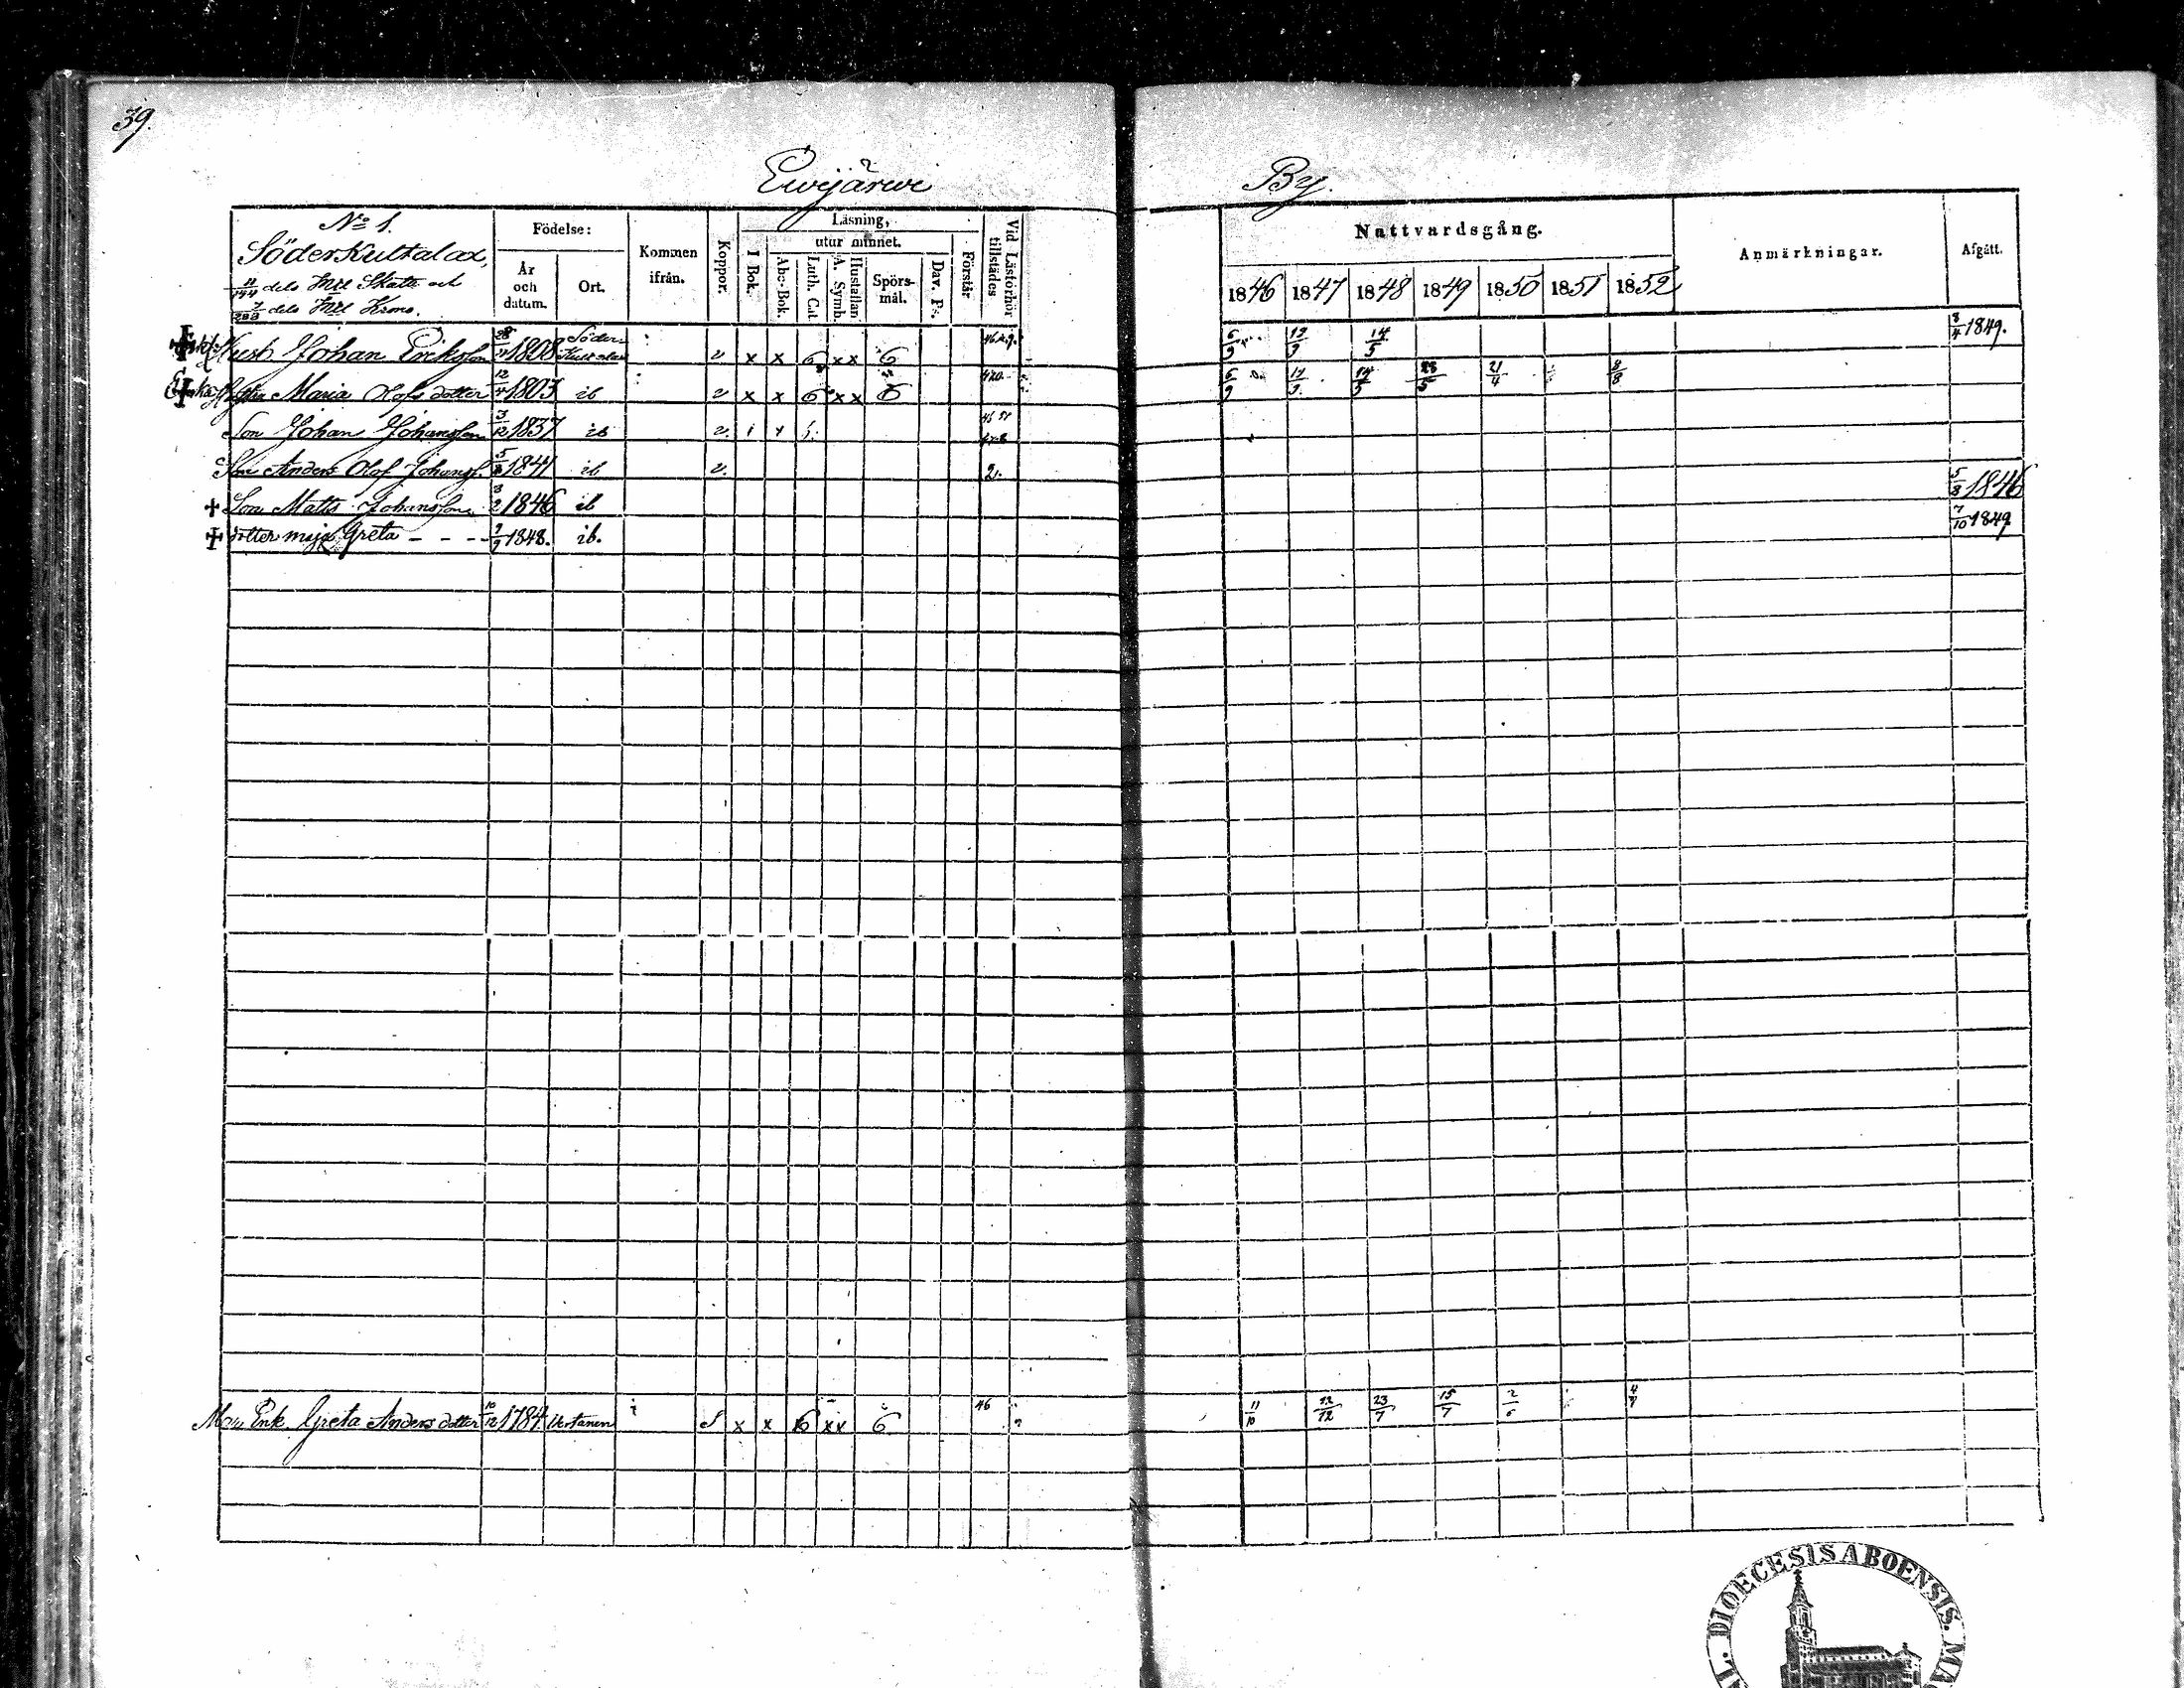 39.
Ewijärwi By.
No 1.
Söderkultalax,
11/144 dels Mtl Skatte och
7/288 dels Mtl Krono.
Födelse:
År och datum.
Ort.
Kommen ifrån.
Koppor.
Läsning,
utur minnet.
I Bok.
Abc-Bok.
Luth. Cat.
Hustaflan
A. Symb.
Spörs-mål.
Dav. Ps.
Förstår
Vid Läsförhör tillstädes
Nattvardsgång.
1846 1847 1848 1849 1850 1851 1852
Anmärkningar.
Afgått.
Husb Johan Eriksson 1808 Söder Kultalax v x x 6 x x 6 6/9 14/5 8/4 1849.
Enka Maria Olofsdotter 12/4 1803 ib v x x 6 x x 6 6/9 14/5 28/5 21/4 8/8
Son Johan Johansson 3/12 1837 ib v.
Son Anders Olof Johanss. 1841 ib v. 2.
+ Son Matts Johansson 8/2 1846 ib 5/8 1846
dotter maja Greta - - - 1848. ib. 7/10 1849
Enk. Greta Andersdotter 10/12 1784 x x 6 x x 6 46 11/10 22/12 23/7 15/7 2/6 4/7
DIOECESIS ABOENSIS.